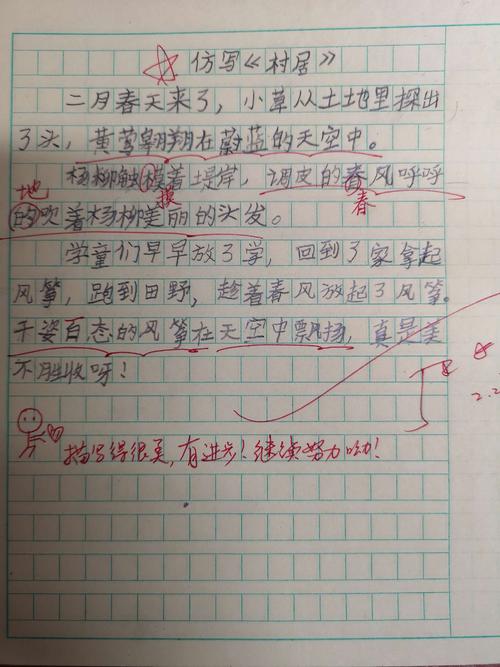 仿写《村居》
二月春天来了，小草从土地里探出
了头，黄莺翱翔在蔚蓝的天空中。
杨柳触模着堤岸，调皮的春风呼呼
地 摸 春
的吹着杨柳美丽的头发。
学童们早早放了学，回到了家拿起
风筝，跑到田野，趁着春风放起了风筝。
千姿百态的风筝在天空中飘扬，真是美
不胜收呀！
描写得很美，有进步！继续努力呦！